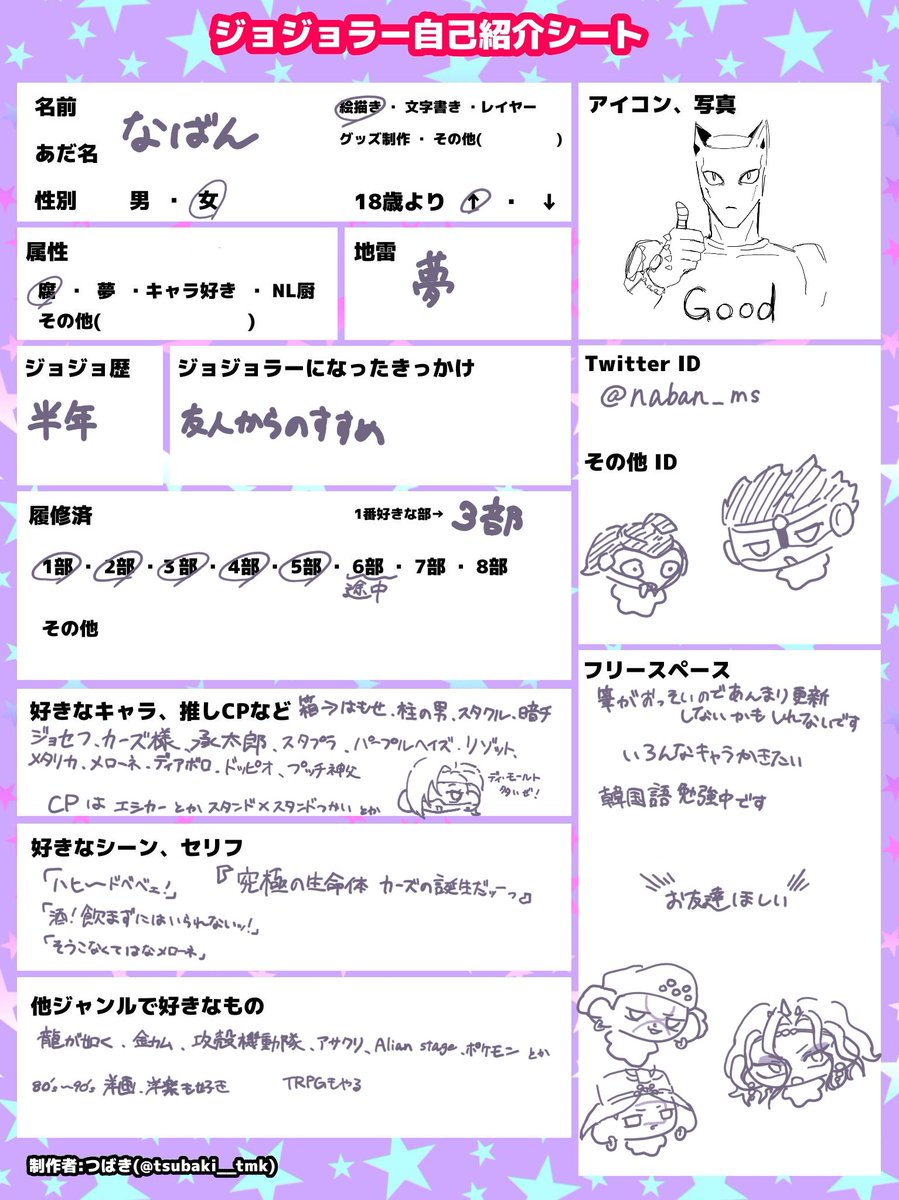 ジョジョラー自己紹介シート
名前
あだ名
なばん
絵描き・文字書き・レイヤー
グッズ制作・その他( )
性別 男・女
18歳より ↑・↓
属性
腐・夢・キャラ好き・NL厨
その他( )
地雷
夢
ジョジョ歴
半年
ジョジョラーになったきっかけ
友人からのすすめ
履修済
1番好きな部→ 3部
1部・2部・3部・4部・5部・6部・7部・8部
途中
その他
好きなキャラ、推しCPなど
箱→はもせ、柱の男、スタクル、暗チ
ジョセフ、カーズ様、承太郎、スタプラ、パープルヘイズ、リゾット、
メタリカ、メローネ、ディアボロ、ドッピオ、プッチ神父
ディ・モールト
タいぜ!
CPは エシカー とか スタンド×スタンドつかい とか
好きなシーン、セリフ
「ハヒ〜ドベベェ!」
『究極の生命体 カーズの誕生だッーっ』
「酒!飲まずにはいられないッ!」
「そうこなくてはなメローネ」
他ジャンルで好きなもの
龍が如く、金カム、攻殻機動隊、アサクリ、Alian stage、ポケモン とか
80's〜90's 洋画、洋楽も好き TRPGもやる
アイコン、写真
Good
Twitter ID
@naban_ms
その他 ID
フリースペース
筆がおっそいのであんまり更新
しないかもしれないです
いろんなキャラかきたい
韓国語 勉強中です
お友達ほしい
制作者:つばき(@tsubaki__tmk)